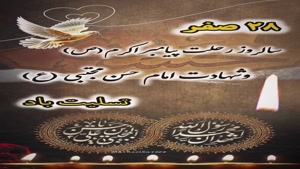 ۲۸ صفر
سالروز رحلت پیامبر اکرم (ص)
و شهادت امام حسن مجتبی (ع)
تسلیت باد